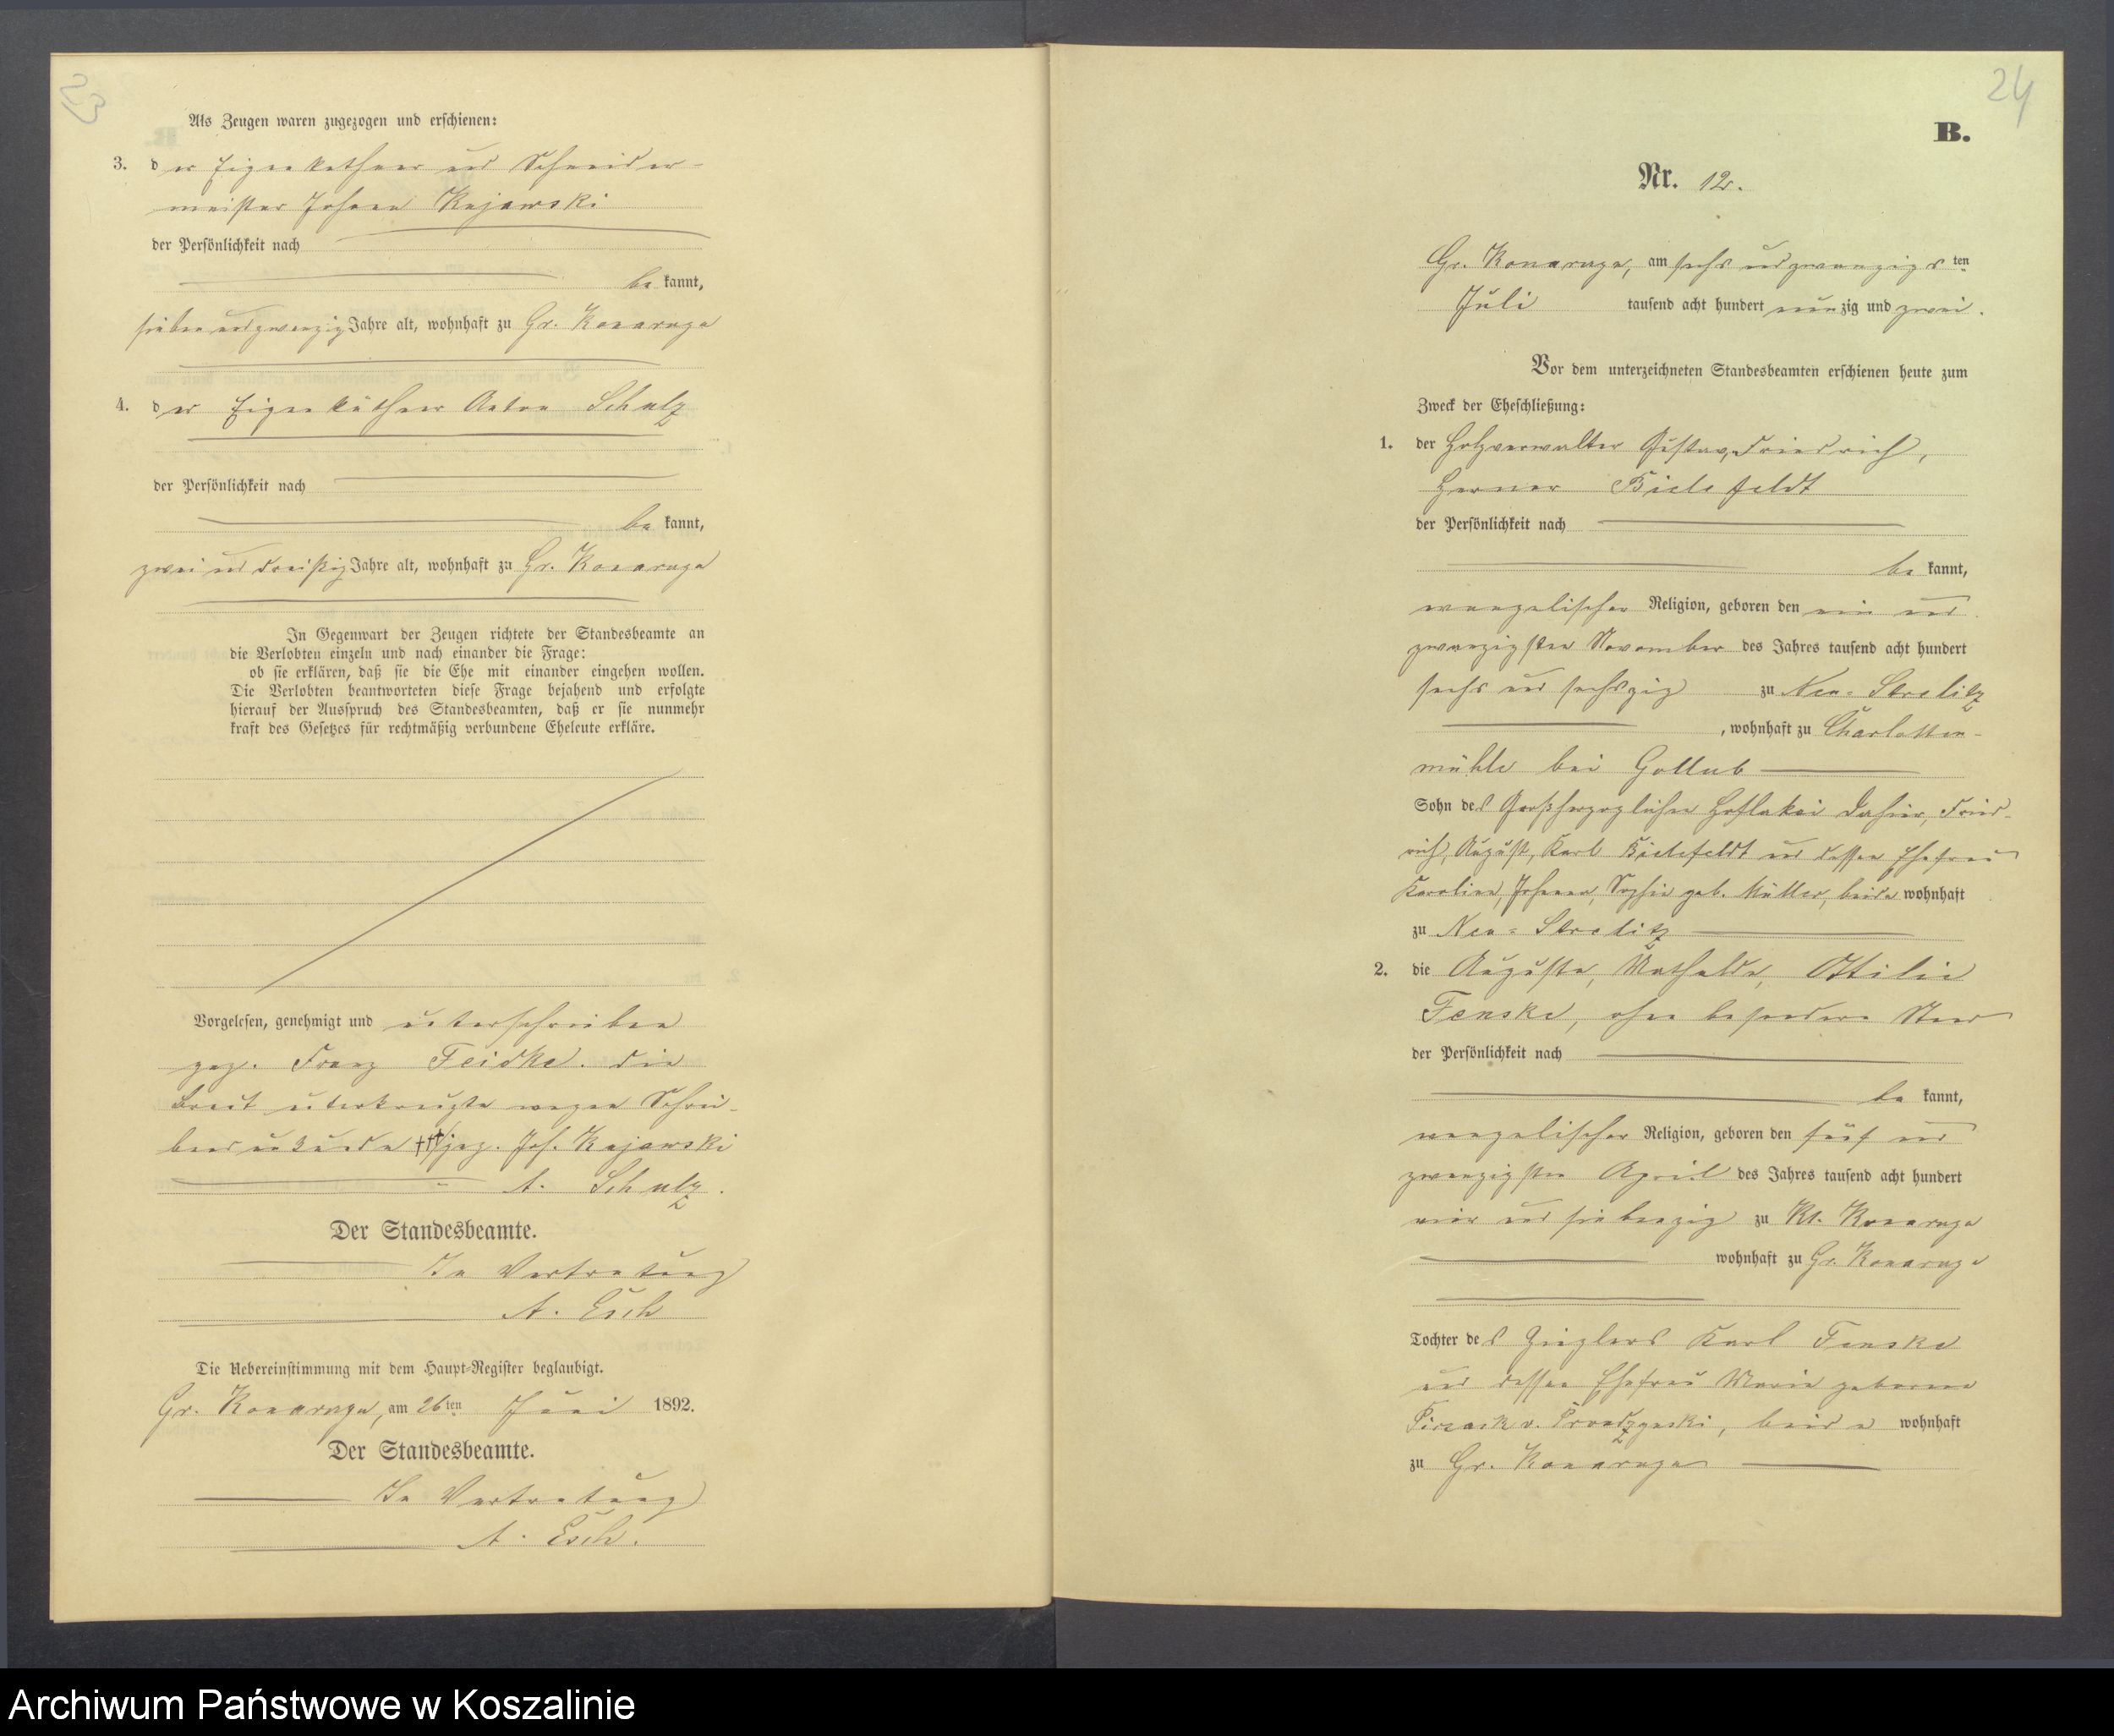 23
Als Zeugen waren zugezogen und erschienen:
3. der Eigenkäthner und Schneider-
meister Johann Kujawski
der Persönlichkeit nach
be kannt,
sieben und zwanzig Jahre alt, wohnhaft zu Gr. Konarczyn
4. der Eigenkäthner Anton Schulz
der Persönlichkeit nach
be kannt,
zwei und dreißig Jahre alt, wohnhaft zu Gr.
In Gegenwart der Zeugen richtete der Standesbeamte an
die Verlobten einzeln und nach einander die Frage:
ob sie erklären, daß sie die Ehe mit einander eingehen wollen.
Die Verlobten beantworteten diese Frage bejahend und erfolgte
hierauf der Ausspruch des Standesbeamten, daß er sie nunmehr
kraft des Gesetzes für rechtmäßig verbundene Eheleute erkläre.
Vorgelesen, genehmigt und unterschrieben
gez. Franz die
Braut unterkreuzte wegen Schrei-
bensunkunde +++ gez. Joh. Kujawski
A. Schulz.
Der Standesbeamte.
In Vertretung
A. Esch
Die Uebereinstimmung mit dem Haupt-Register beglaubigt.
Gr. am 26ten Juni 1892.
Der Standesbeamte.
In Vertretung
A. Esch.
24
B.
Nr. 12.
Gr. am sechs und zwanzigsten
Juli tausend acht hundert neunzig und zwei.
Vor dem unterzeichneten Standesbeamten erschienen heute zum
Zweck der Eheschließung:
1. der Holzverwalter Gustav, Friedrich,
Bielefeldt
der Persönlichkeit nach
be kannt,
evangelischer Religion, geboren den ein und
zwanzigsten November des Jahres tausend acht hundert
sechs und sechszig zu Neu-Strelitz
, wohnhaft zu Charlotten-
mühle bei Gollub
Sohn des Großherzoglichen Hoflakai Fried-
rich, August, Karl Bielefeldt und dessen Ehefrau
Karoline, Johanna, Sophie geb. Müller, beide wohnhaft
zu Neu-Strelitz
2. die Auguste, Mathilde, Ottilie
Fenske, ohne besonderen Stand
der Persönlichkeit nach
be kannt,
evangelischer Religion, geboren den fünf und
zwanzigsten April des Jahres tausend acht hundert
vier und siebenzig zu Kl.
wohnhaft zu Gr.
Tochter des Zieglers Karl Fenske
und dessen Ehefrau Marie geborene
beide wohnhaft
zu Gr.
Archiwum Państwowe w Koszalinie